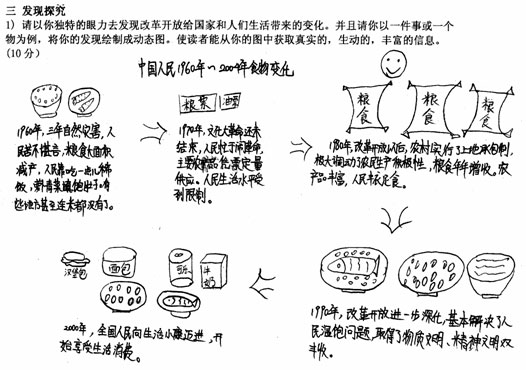 三 发现探究
1) 请以你独特的眼力去发现改革开放给国家和人们生活带来的变化。并且请你以一件事或一个
物为例，将你的发现绘制成动态图。使读者能从你的图中获取真实的，生动的，丰富的信息。
(10 分)
中国人民1960年～2004年食物变化
1960年，三年自然灾害，人
民苦不堪言，粮食大面积
减产，人民靠吃
饭，
些地方甚至连米都没有了。
粮票
油票
1970年，文化大革命还未
结束，人民忙于闹革命，
主要农副产品需定量
供应。人民生活水平受
到限制。
粮食
粮食
粮食
1980年，改革开放以后，农村实行了土地承包制，
极大调动了农民生产积极性，粮食年年增收。农
产品丰富，人民丰衣足食。
1990年，改革开放进一步深化，基本解决了人
民温饱问题，取得了物质文明、精神文明双
丰收。
汉堡包
面包
可乐
牛奶
2000年，全国人民向生活小康迈进，开
始享受生活消费。